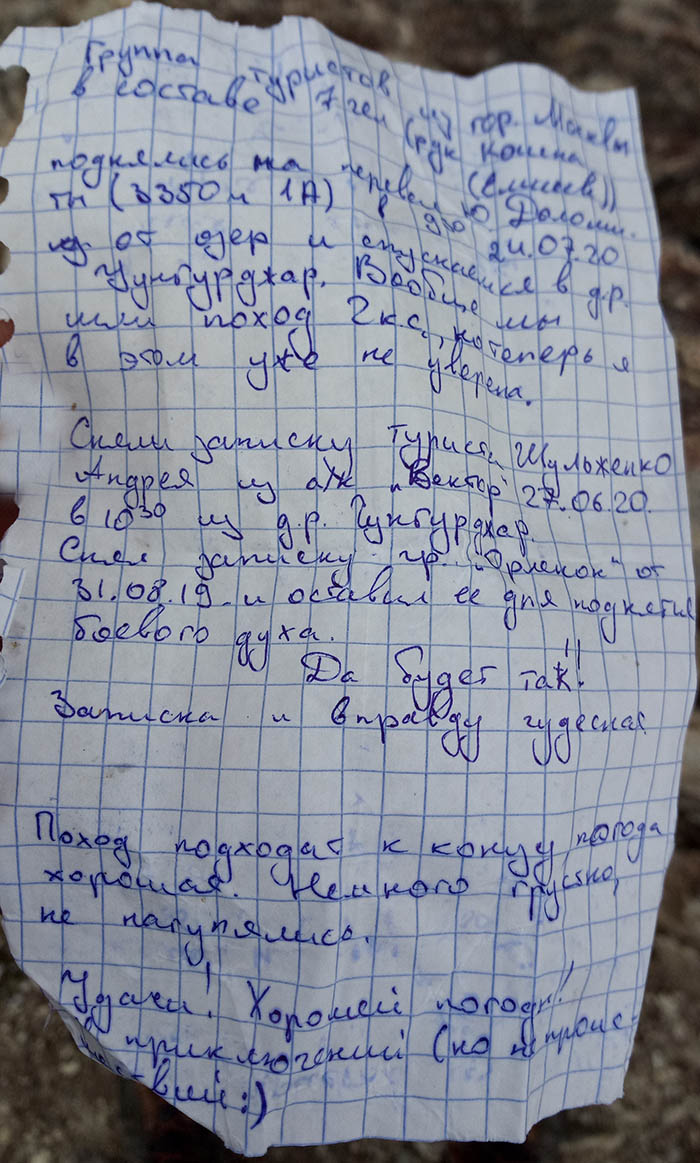 Группа туристов из гор. Москвы
в составе 7 чел (рук Кошена
(Елисеев))
поднялись на перевал Ю. Доломи-
ты (3350м 1А) в 24.07.20
от озер и спускаемся в д.р.
Чунгурджар. Вообще мы
шли поход 2 к.с., но теперь я
в этом уже не уверена.
Сняли записку туриста Шульженко
Андрея из а/к "Вектор" 27.06.20.
в 10 30 из д.р. Чунгурджар.
Снял записку гр. "Орленок" от
31.08.19 и оставил ее для поднятия
боевого духа.
Да будет так!!
Записка и вправду чудесная
Поход подходит к концу, погода
хорошая. Немного грустно,
не нагулялись.
Удачи! Хорошей погоды!
приключений (но не проис-
шествий :)